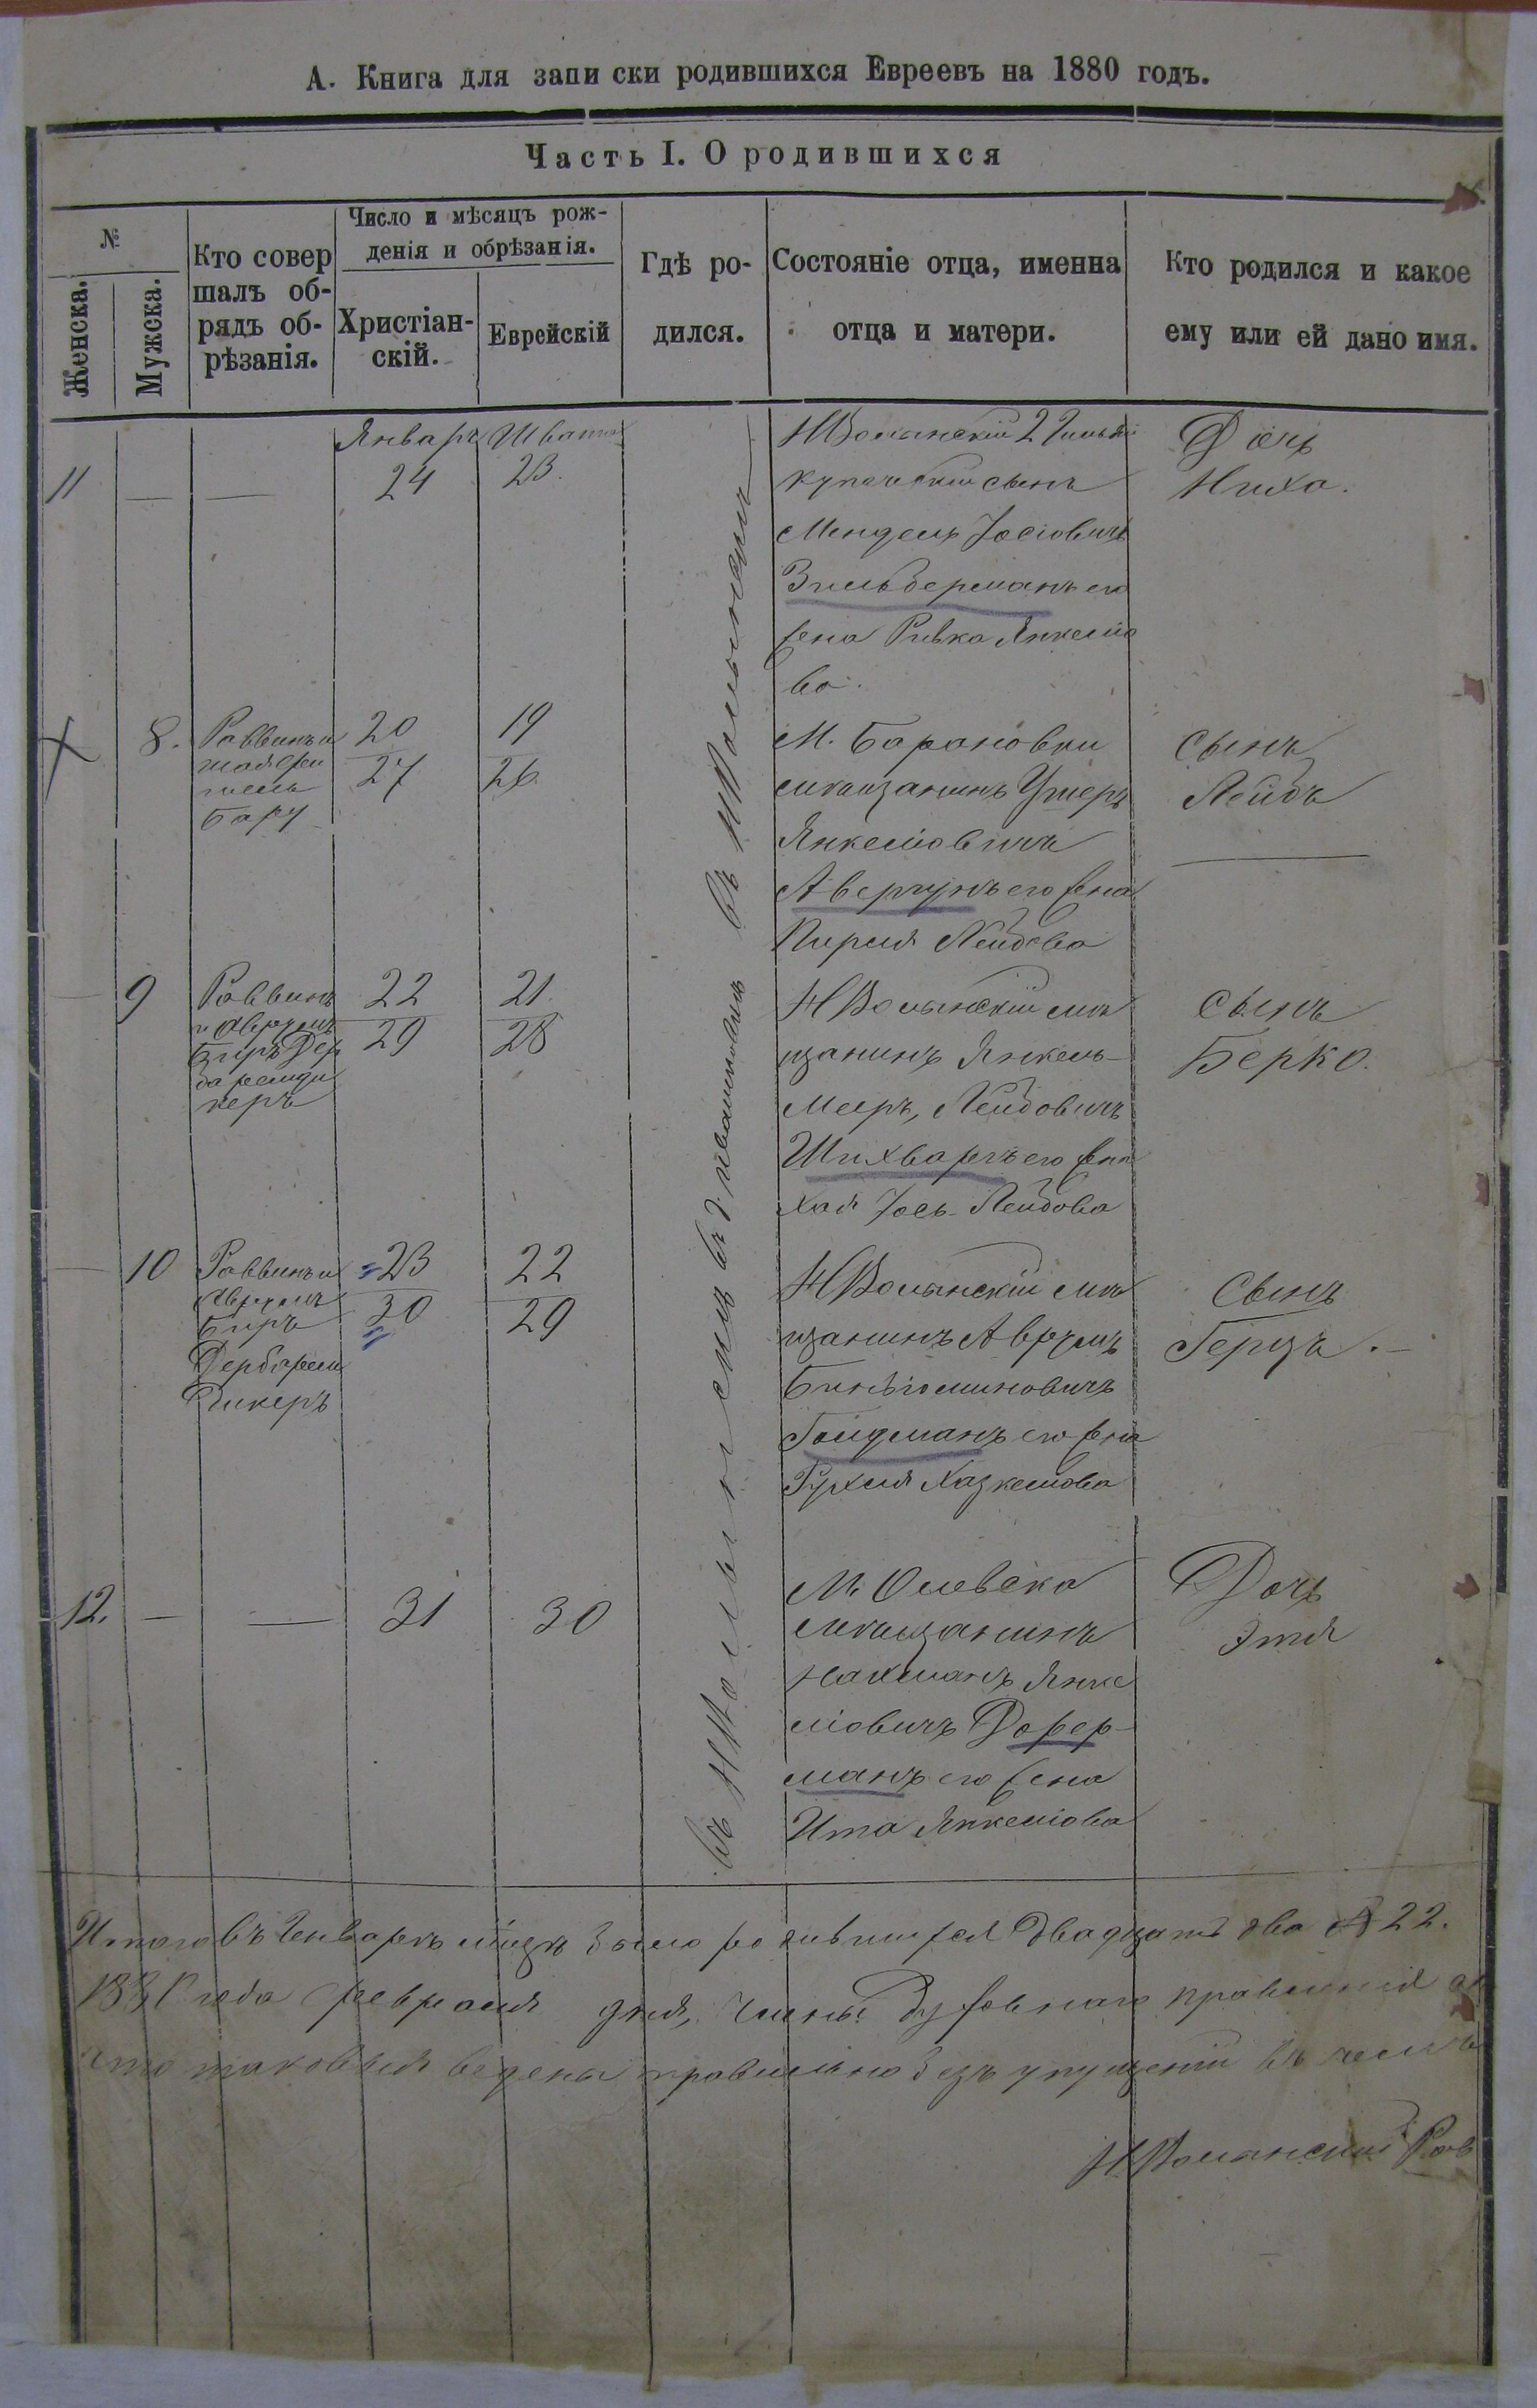 А. Книга для запи ски родившихся Евреевъ на 1880 годъ.
Часть I. О родившихся
№
Женска.
Мужска.
Кто совер
шалъ об-
рядъ об-
рѣзанія.
Число и мѣсяцъ рож-
денія и обрѣзанія.
Христіан-
скій.
Еврейскій
Гдѣ ро-
дился.
Состояніе отца, именна
отца и матери.
Кто родился и какое
ему или ей дано имя.
11
— —
Январъ
24
Швата
23.
НВолынскій 2 Гильдій
купеческій сынъ
Мендель Іосіовичъ
Зильберманъ его
жена Ривка Янкеліо
ва.
Дочь
Ниха.
въ НВолынскѣ
8.
Раввинъ и
Бару
20
27
19
26
М. Барановки
мѣщанинъ Ушеръ
Янкеліовичъ
Авергунъ его жена
Пирля Лейбова
Сынъ
Лейбъ
9
Раввинъ
и Аврумъ
Беръ Дер
баремди
керъ
22
29
21.
28
НВолынскій мѣ
щанинъ Янкель-
Мееръ, Лейбовичъ
Шихваргъ его жена
Хая Іось-Лейбова
Сынъ
Берко.
10
Раввинъ и
Аврумъ
Беръ
Дербарем
дикеръ
23
30
22
29
НВолынскій мѣ
щанинъ Аврумъ
Биніоминовичъ
Гольдманъ его жена
Рухля Хазкелiова
Сынъ
Герцъ.
12.
— —
31
30
М. Олевска
мѣщанинъ
Нахманъ Янке
ліовичъ Дорер-
манъ его жена
Ита Янкеліова
Дочь
Этя
въ
Итого въ Генварѣ мѣсяцѣ было родившихся двадцать два 22.
188 года февраля дня, члены Духовнаго правленія
что таковыя ведены правильно безъ упущеній въ чемъ
НВолынскій Рав